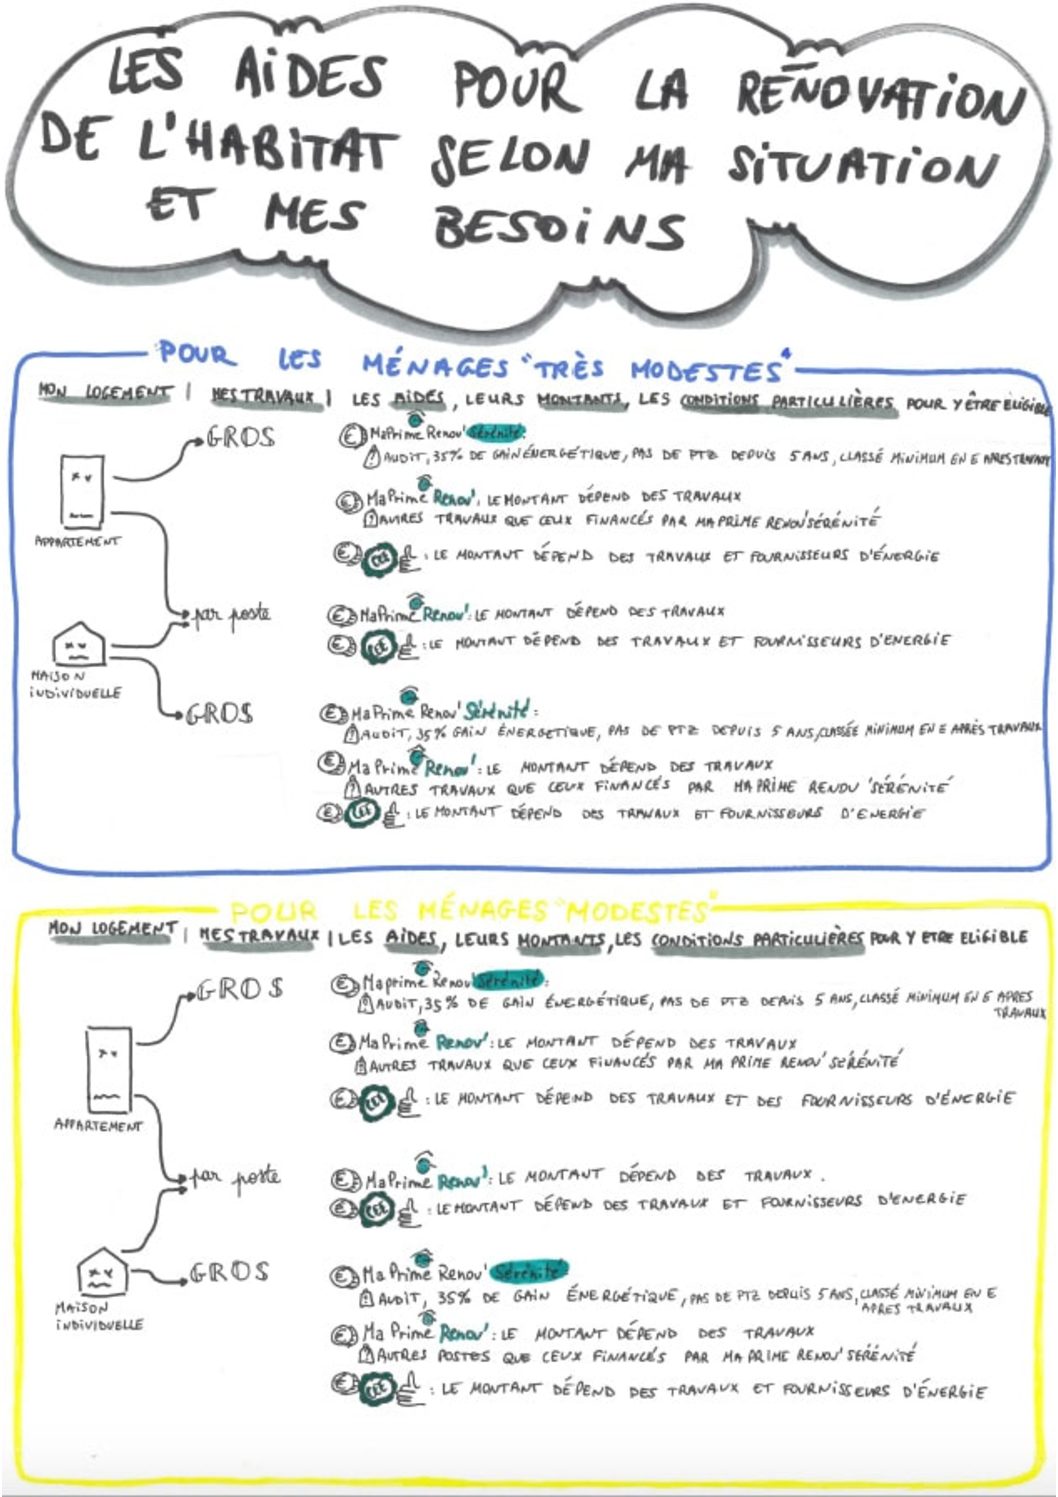 LES AIDES POUR LA RÉNOVATION
DE L'HABITAT SELON MA SITUATION
ET MES BESOINS
POUR LES MÉNAGES "TRÈS MODESTES"
MON LOGEMENT | MES TRAVAUX | LES AIDES, LEURS MONTANTS, LES CONDITIONS PARTICULIÈRES POUR Y ÊTRE ELIGIBLE
GROS
€ MaPrime Renov' Sérénité:
! AUDIT, 35% DE GAIN ÉNERGÉTIQUE, PAS DE PTZ DEPUIS 5 ANS, CLASSÉ MINIMUM EN E APRES TRAVAUX
€ MaPrime Renov': LE MONTANT DÉPEND DES TRAVAUX
! AUTRES TRAVAUX QUE CEUX FINANCÉS PAR MA PRIME RENOV' SÉRÉNITÉ
APPARTEMENT
€ CEE : LE MONTANT DÉPEND DES TRAVAUX ET FOURNISSEURS D'ÉNERGIE
par poste
€ MaPrime Renov': LE MONTANT DÉPEND DES TRAVAUX
€ CEE : LE MONTANT DÉPEND DES TRAVAUX ET FOURNISSEURS D'ENERGIE
MAISON
INDIVIDUELLE
GROS
€ MaPrime Renov' Sérénité:
! AUDIT, 35% GAIN ÉNERGETIQUE, PAS DE PTZ DEPUIS 5 ANS, CLASSÉE MINIMUM EN E APRÈS TRAVAUX
€ Ma Prime Renov': LE MONTANT DÉPEND DES TRAVAUX
! AUTRES TRAVAUX QUE CEUX FINANCÉS PAR MA PRIME RENOV 'SÉRÉNITÉ'
€ CEE : LE MONTANT DÉPEND DES TRAVAUX ET FOURNISSEURS D'ENERGIE
POUR LES MÉNAGES "MODESTES"
MON LOGEMENT | MES TRAVAUX | LES AIDES, LEURS MONTANTS, LES CONDITIONS PARTICULIÈRES POUR Y ETRE ELIGIBLE
GROS
€ Maprime Renov Sérénité:
! AUDIT, 35% DE GAIN ÉNERGÉTIQUE, PAS DE PTZ DEPUIS 5 ANS, CLASSÉ MINIMUM EN E APRES
TRAVAUX
€ MaPrime Renov': LE MONTANT DÉPEND DES TRAVAUX
! AUTRES TRAVAUX QUE CEUX FINANCÉS PAR MA PRIME RENOV' SÉRÉNITÉ
€ CEE : LE MONTANT DÉPEND DES TRAVAUX ET DES FOURNISSEURS D'ÉNERGIE
APPARTEMENT
par poste
€ MaPrime Renov': LE MONTANT DÉPEND DES TRAVAUX.
€ CEE : LE MONTANT DÉPEND DES TRAVAUX ET FOURNISSEURS D'ENERGIE
GROS
€ Ma Prime Renov' Sérénité
! AUDIT, 35% DE GAIN ÉNERGÉTIQUE, PAS DE PTZ DEPUIS 5 ANS, CLASSÉ MINIMUM EN E
APRES TRAVAUX
MAISON
INDIVIDUELLE
€ Ma Prime Renov': LE MONTANT DÉPEND DES TRAVAUX
! AUTRES POSTES QUE CEUX FINANCÉS PAR MA PRIME RENOV' SERÉNITÉ
€ CEE : LE MONTANT DÉPEND DES TRAVAUX ET FOURNISSEURS D'ÉNERGIE